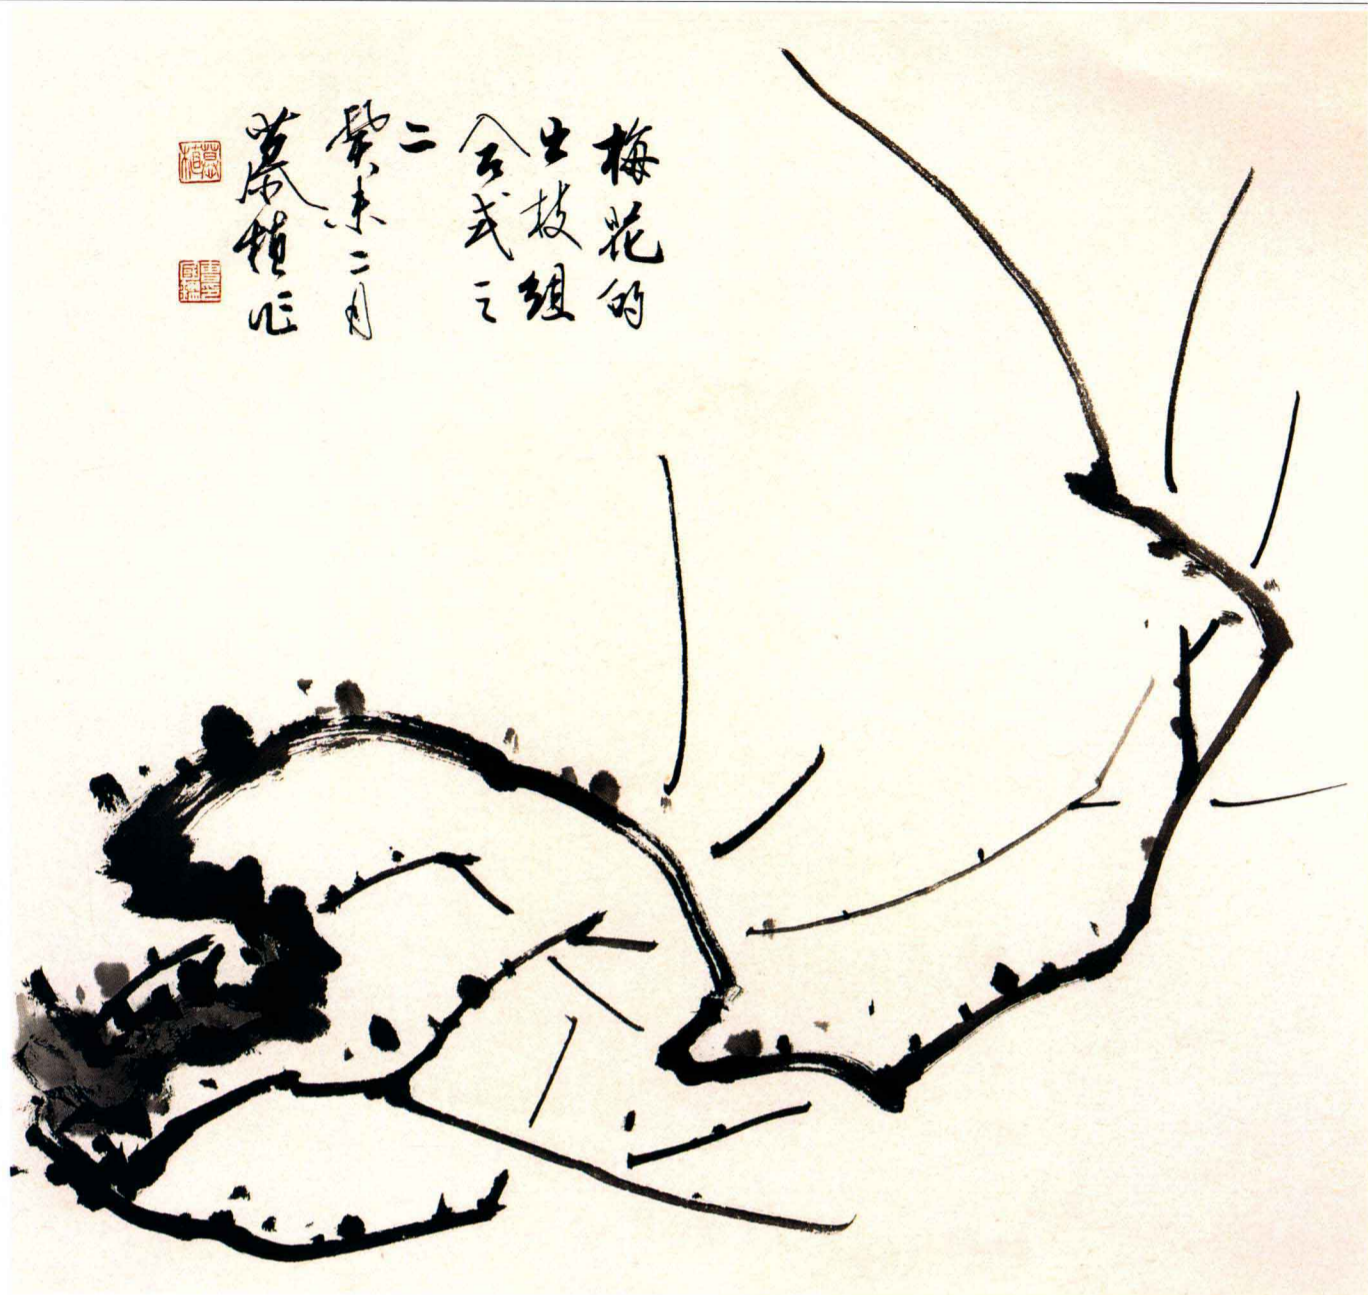 梅花的
出枝组
合式之
二
癸未二月
慕植作